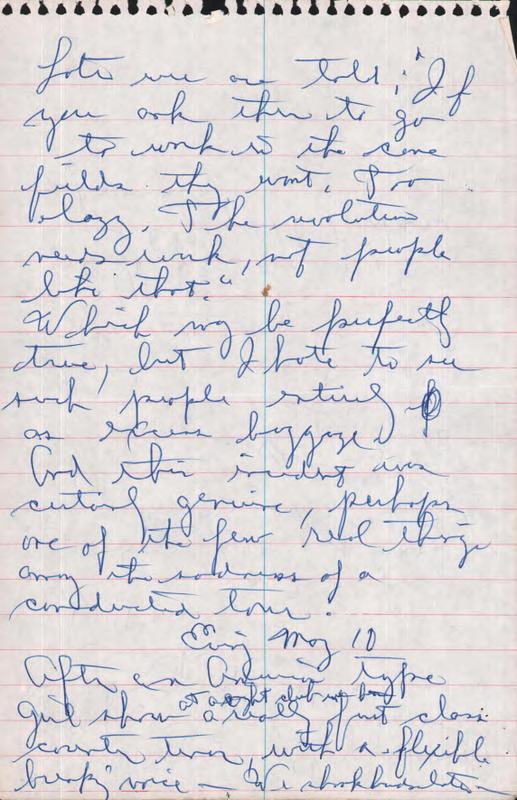 Later we are told; "If
you ask them to go
to work in the cane
fields they won't. Too
lazy. The revolution
needs work, not people
like that."
Which may be perfectly
true, but I hate to see
such people
as excess baggage.
And this incident was
certainly genuine, perhaps
one of the few real things
among the sadness of a
conducted tour.
May 10
After an American type
at a night club
girl show a really first class
counter tenor, with a flexible
husky voice — We shook hands